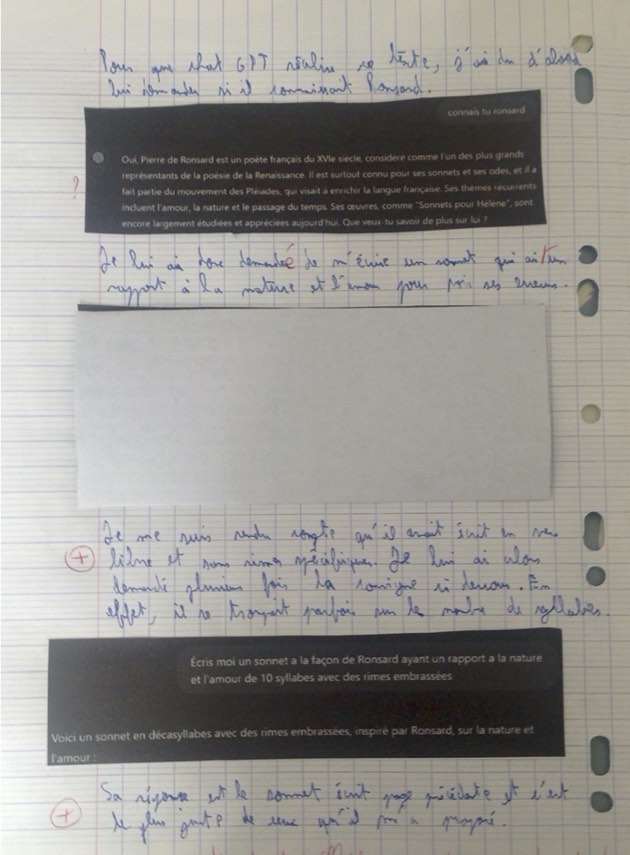 Pour que chat GPT réalise ce texte, j'ai du d'abord
lui demander si il connaissait Ronsard.
connais tu ronsard
Oui, Pierre de Ronsard est un poète français du XVIe siècle, considéré comme l'un des plus grands
représentants de la poésie de la Renaissance. Il est surtout connu pour ses sonnets et ses odes, et il a
fait partie du mouvement des Pléiades, qui visait à enrichir la langue française. Ses thèmes récurrents
incluent l'amour, la nature et le passage du temps. Ses œuvres, comme "Sonnets pour Hélène", sont
encore largement étudiées et appréciées aujourd'hui. Que veux-tu savoir de plus sur lui ?
?
Je lui ai donc demandé de m'écrire un sonnet qui ait un
rapport à la nature et l'amour pour
Je me suis rendu compte qu'il avait écrit en vers
+ libre et sans rimes spécifiques. Je lui ai alors
demandé plusieurs fois la consigne ci dessous. En
effet, il se trompait parfois sur le nombre de syllabes.
Écris moi un sonnet a la façon de Ronsard ayant un rapport a la nature
et l'amour de 10 syllabes avec des rimes embrassées
Voici un sonnet en décasyllabes avec des rimes embrassées, inspiré par Ronsard, sur la nature et
l'amour :
Sa réponse est le sonnet écrit page précédente et c'est
+ le plus juste de ceux qu'il m'a proposé.